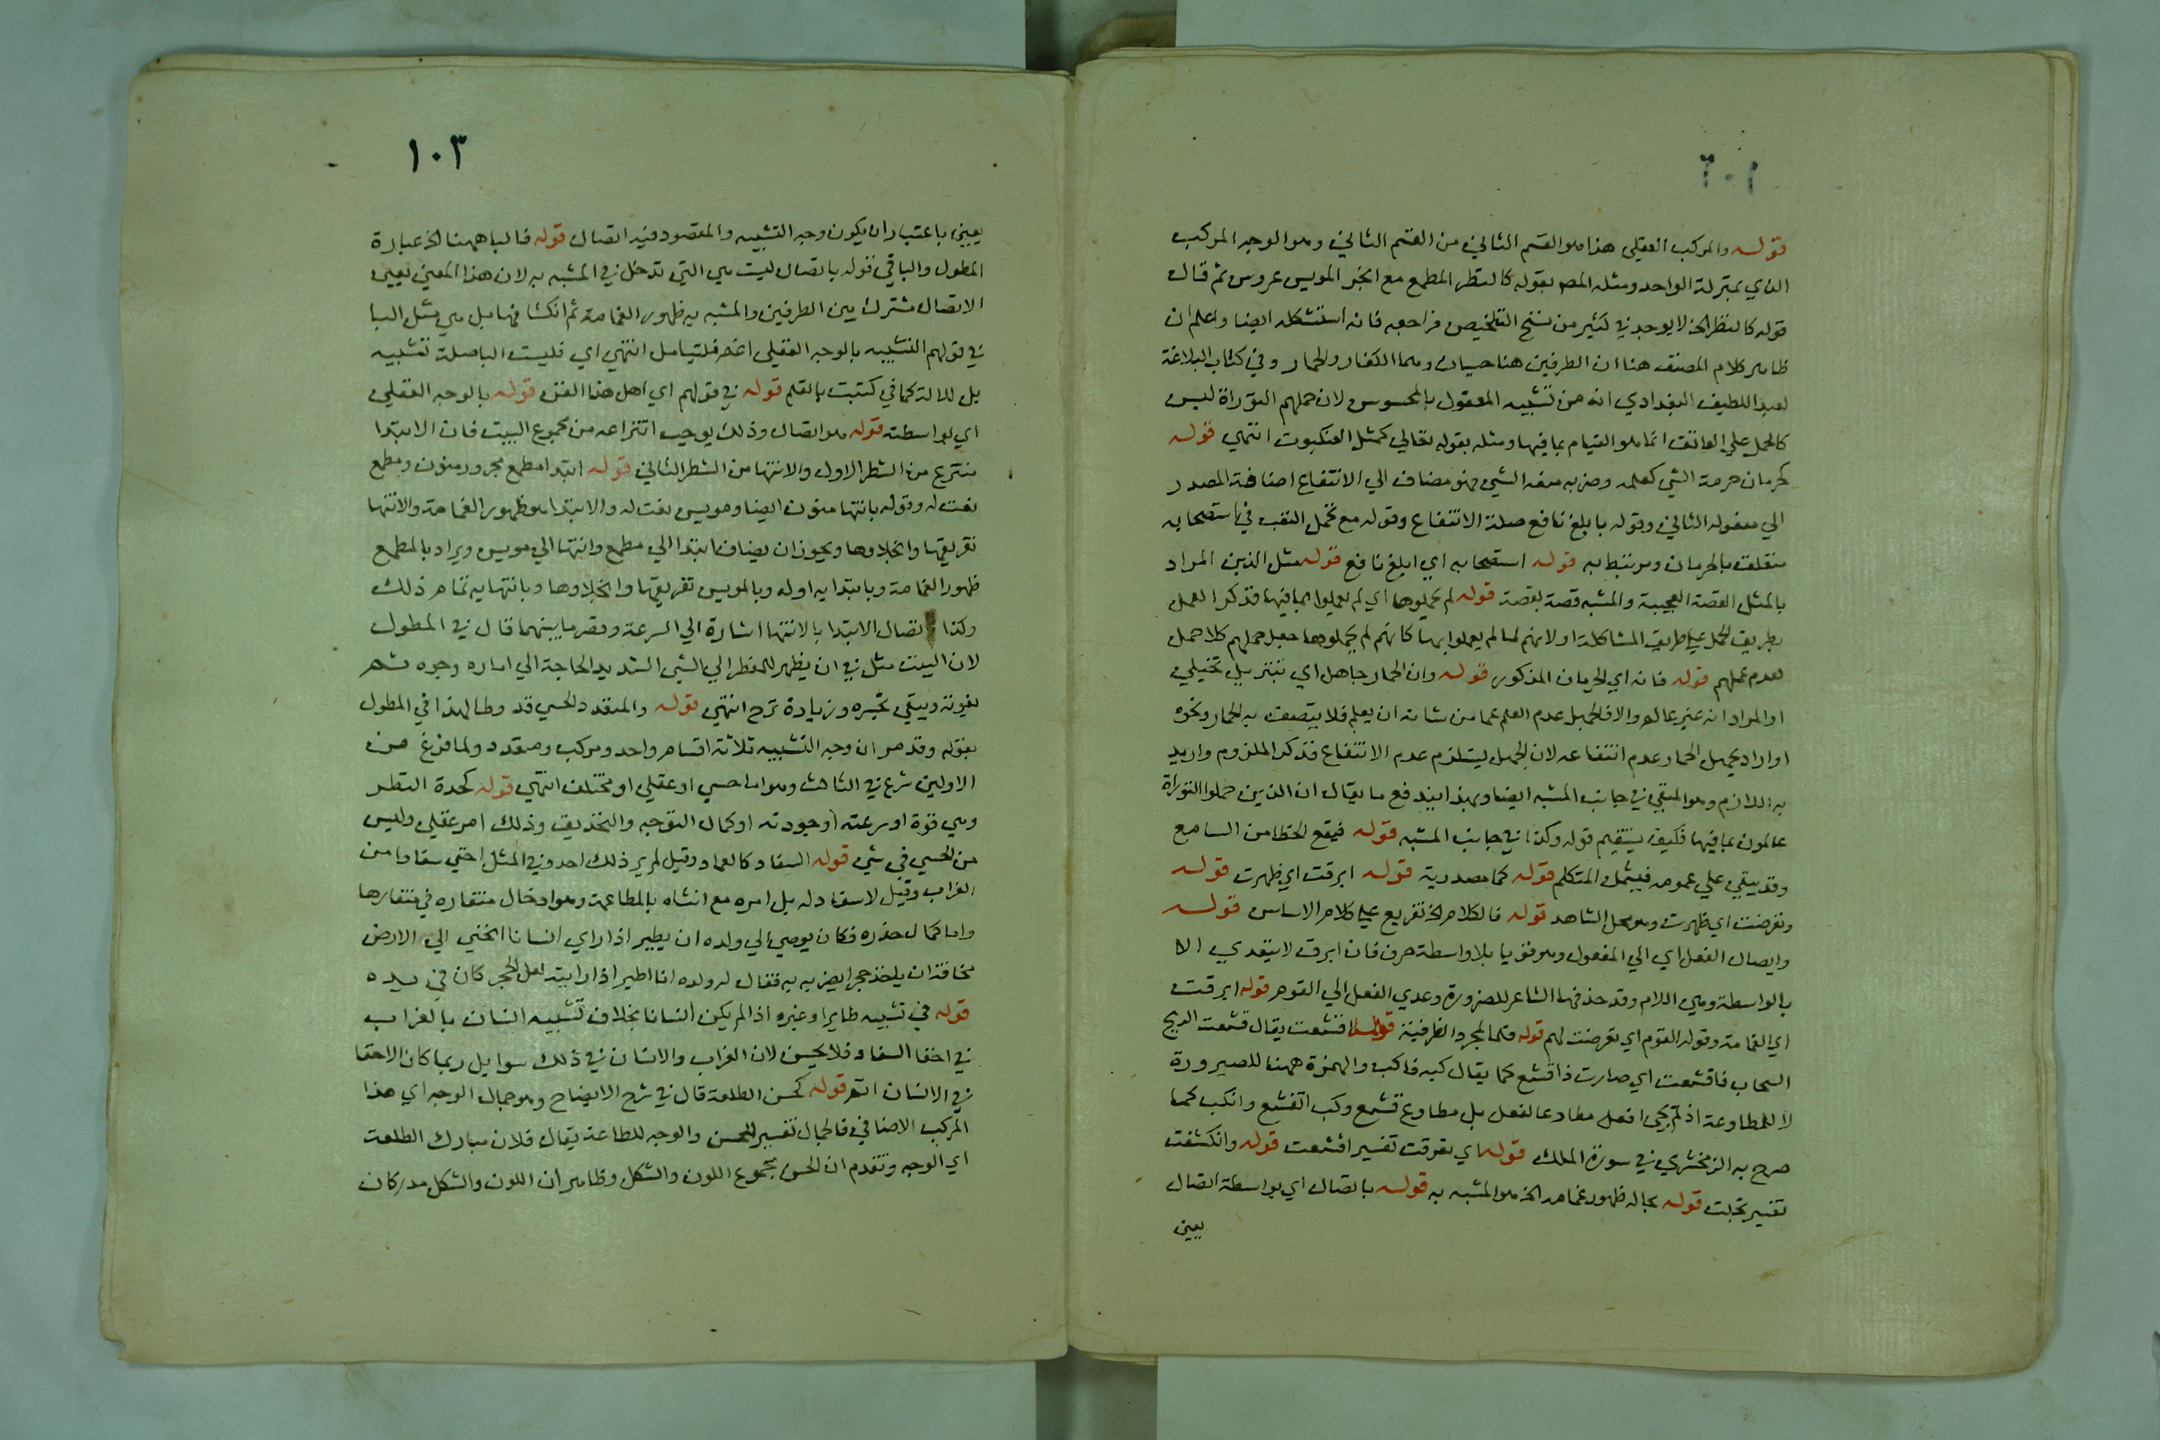 ١٠٢
قوله والمركب العقلي هذا هو القسم الثاني من القسم الثاني وهو الوجه المركب
الذي بمنزلة الواحد ومثله المص بقوله كالنظر المطمع مع الخبر المويس عروس ثم قال
قوله كالنظر الخ لا يوجد في كثير من نسخ التلخيص فراجعه فانه استشكله ايضا واعلم ان
ظاهر كلام المصنف هنا ان الطرفين هنا حسيان وهما الكفار والحمار وفي كتاب البلاغة
لعبد اللطيف البغدادي انه من تشبيه المعقول بالمحسوس لان حملهم التوراة ليس
كالحمل علي العاتق انما هو القيام بما فيها ومثله بقوله تعالي كمثل العنكبوت انتهي قوله
كحرمان حرمة الشي كعلمه وضربه منعه الشي فهو مضاف الي الانتفاع اضافة المصدر
الي مفعوله الثاني وقوله بابلغ نافع صلة الانتفاع وقوله مع تحمل التعب في استصحابه
متعلق بالحرمان ومرتبط به قوله استصحابه اي ابلغ نافع قوله مثل الذين المراد
بالمثل القصة العجيبة والمشبه قصة بقصة قوله لم يحملوها اي لم يعملوا بما فيها فذكر العمل
بطريق الحمل علي طريق المشاكلة اولانهم لما لم يعملوا بها كانهم لم يحملوها جعل حملهم كلا حمل
لعدم عملهم قوله فانه اي الحرمان المذكور قوله وان الحمار جاهل اي بتنزيل تخييلي
او المراد انه غير عالم والا فالجهل عدم العلم عما من شانه ان يعلم فلا يتصف به الحمار ونحوه
او اراد بجهل الحمار عدم انتفاعه لان الجهل يستلزم عدم الانتفاع فذكر الملزوم واريد
به اللازم وهو المبتغي في جانب المشبه ايضا وبهذا يندفع ما يقال ان الذين حملوا التوراة
عالمون بما فيها فكيف يستقيم قوله وكذا في جانب المشبه قوله فيقع الخطا من السامع
وقد يبقي علي عمومه فيشمل المتكلم قوله كما مصدرية قوله ابرقت اي ظهرت قوله
وتعرضت اي ظهرت وهو محل الشاهد قوله فالكلام الخ تفريع علي كلام الاساس قوله
وايصال الفعل اي الي المفعول وهو فوق يا بلا واسطة حرف فان ابرق لا يتعدي الا
بالواسطة وهي اللام وقد حذفها الشاعر للضرورة وعدي الفعل الي القوم قوله ابرقت
اي الغمامة وقوله القوم اي تعرضت لهم قوله فلما لمجرد الظرفية قوله اقشعت يقال قشعت الريح
السحاب فاقشعت اي صارت ذا قشع كما يقال كبه فاكب والهمزة ههنا للصيرورة
لا للمطاوعة اذ لم يجي افعل مطاوعا لفعل بل مطاوع قشع وكب انقشع وانكب كما
صرح به الزمخشري في سورة الملك قوله اي تفرقت تفسير اقشعت قوله وانكشفت
تفسير تجلت قوله بحاله ظهور غمامه الخ هو المشبه به قوله باتصال اي بواسطة اتصال
يعني
١٠٣
يعني باعتبار ان يكون وجه التشبيه والمقصود فيه اتصال قوله فالبا ههنا الخ عبارة
المطول والباقي قوله باتصال ليست هي التي تدخل في المشبه به لان هذا المعني يعني
الاتصال مشترك بين الطرفين والمشبه به ظهور الغمامة ثم انكشافها بل هي مثل البا
في قولهم التشبيه بالوجه العقلي اعم فليتامل انتهي اي فليست البا صلة تشبيه
بل للالة كما في كتبت بالقلم قوله في قولهم اي اهل هذا الفن قوله بالوجه العقلي
اي بواسطته قوله هو اتصال وذلك يوجب انتزاعه من مجموع البيت فان الابتدا
منتزع من الشطر الاول والانتها من الشطر الثاني قوله ابتدا مطمع مجرور منون ومطمع
نعت له وقوله بانتها منون ايضا ومويس نعت له والابتدا هو ظهور الغمامة والانتها
تفريقها وانجلاوها ويجوز ان يضاف ابتدا الي مطمع وانتها الي مويس ويراد بالمطمع
ظهور الغمامة وبابتدايه اوله وبالمويس تفريقها وانجلاوها وبانتهايه تمام ذلك
وكذا اتصال الابتدا بالانتها اشارة الي السرعة وقصر ما بينهما قال في المطول
لان البيت مثل في ان يظهر للمضطر الي الشي الشديد الحاجة الي اماره وجوده ثم
يفوته ويبقي تحيره وزيادة ترح انتهي قوله والمتعدد الحسي قد وطا لهذا في المطول
بقوله وقد مر ان وجه التشبيه ثلاثة اقسام واحد ومركب ومتعدد ولما فرغ من
الاولين شرع في الثالث وهو اما حسي او عقلي او مختلف انتهي قوله كحدة النظر
وهي قوة او سرعته او جودته او كمال التوجه والتحديق وذلك امر عقلي وليس
من الحسي في شي قوله السفاد كالعماد وقيل لم ير ذلك احد وفي المثل اخفي سفادا من
الغراب وقيل لا سفاد له بل امره مع انثاه بالمطاعمة وهو ادخال منقاره في منقارها
واما كمال حذره فكان يوصي الي ولده ان يطير اذا راي انسانا انحني الي الارض
مخافة ان ياخذ حجرا يضربه به فقال له ولده انا اطير اذا رايته لعل الحجر كان في يده
قوله في تشبيه طاير او غيره اذا لم يكن انسانا بخلاف تشبيه انسان بالغراب
في اخفا السفاد فلا يحسن لان الغراب والانسان في ذلك سوا بل ربما كان الاخفا
في الانسان اتم قوله كحسن الطلعة قال في شرح الايضاح وهو جمال الوجه اي هذا
المركب الاضافي فالجمال تفسير للحسن والوجه للطلعة يقال فلان مبارك الطلعة
اي الوجه وتقدم ان الحسن مجموع اللون والشكل وظاهر ان اللون والشكل مدركان